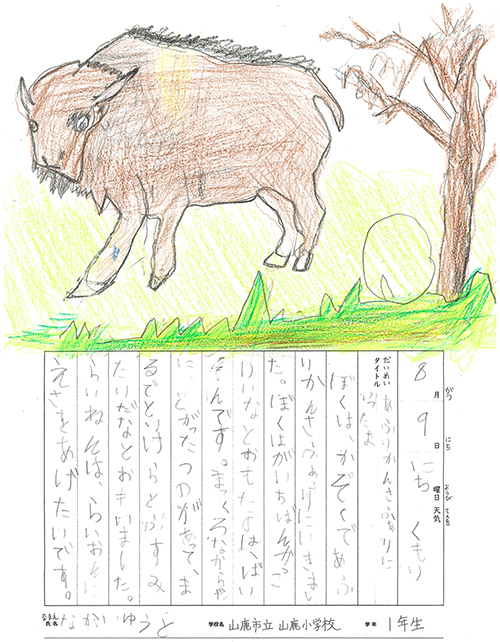 8がつ月 9にち日 にちようび曜日 てんき天気 くもり
だいめいタイトル あふりかんさふぁりにいったよ
ぼくは、かぞくであふ
りかんさふぁりにいきまし
た。ぼくはがいちばんかっこ
いいなとおもたのは、ばい
そんです。まっくろなからだ
に、とがたつのがあって、ま
るでといけらとぷすみ
たいだなとおもいました。
らいねんは、らいおんに
えさをあげたいです。
なまえ氏名 なかいゆうと 学校名 山鹿市立山鹿小学校 学年 1年生